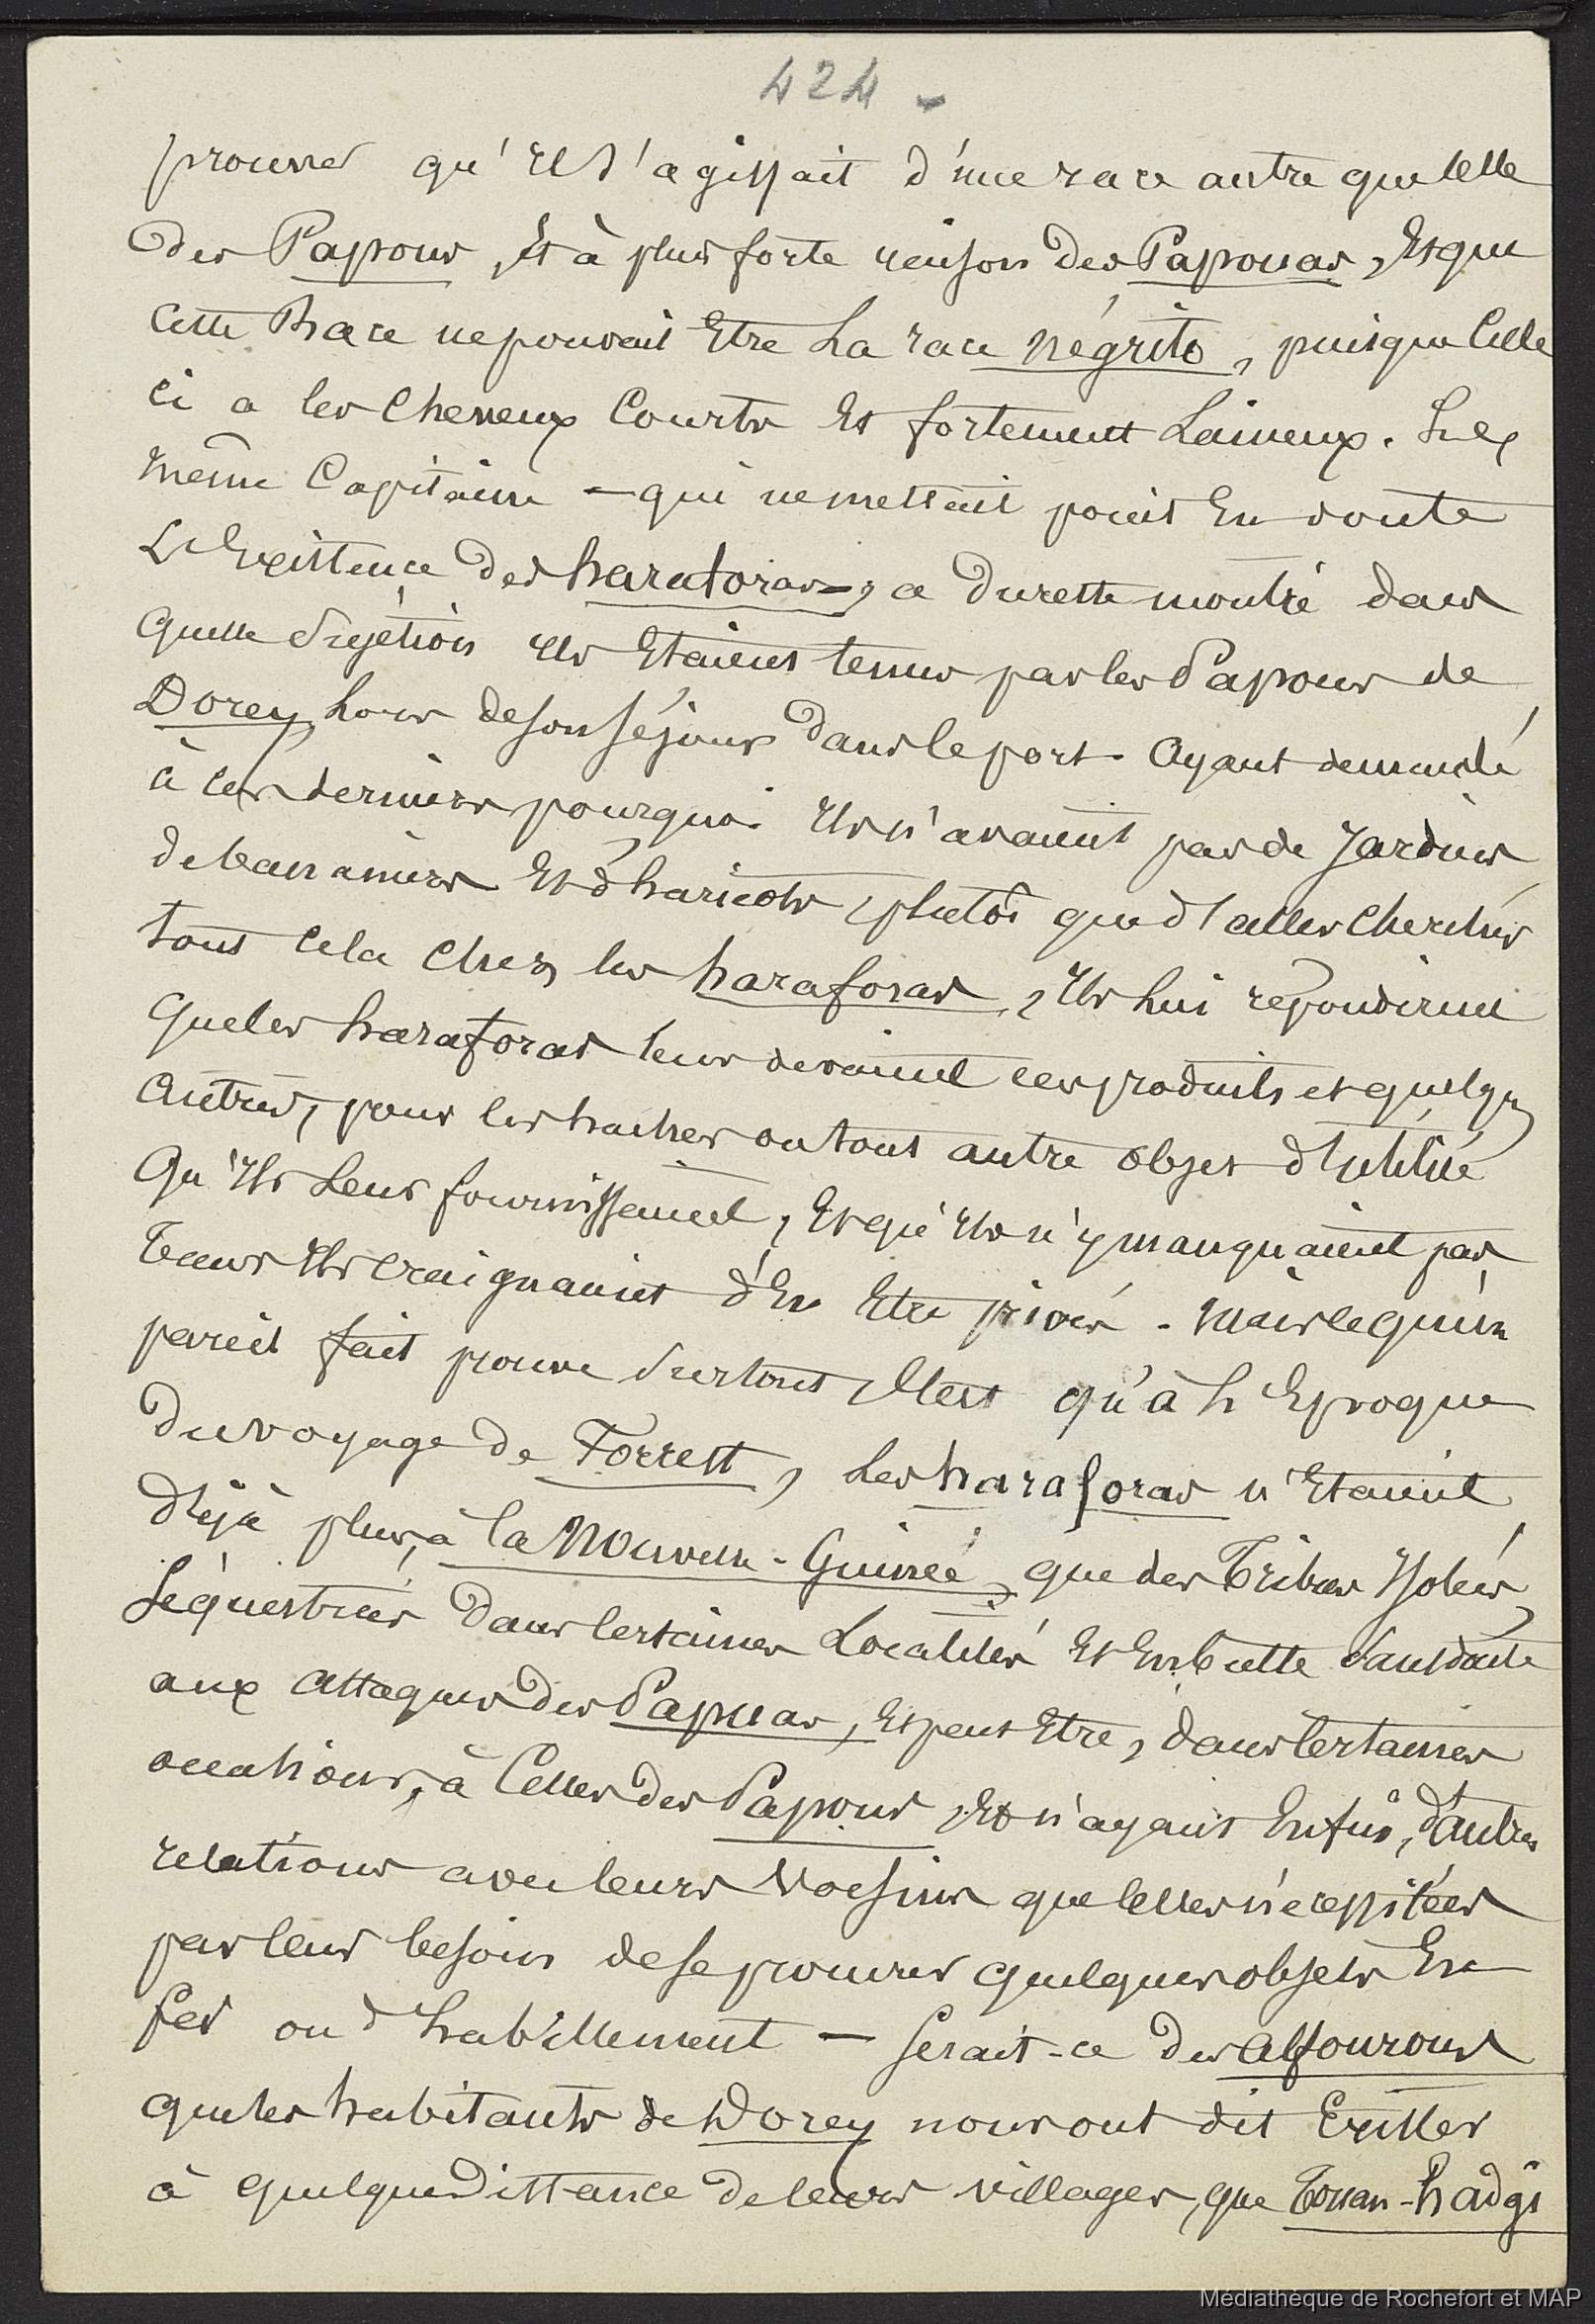 424 -
prouver qu'il s'agissait d'une race autre que celle
des Papous, Et à plus forte raison des Papouas, Et que
Cette Race ne pouvait Etre La race négrito, puisque Celle
ci a les Cheveux Courts Et fortement Laineux. Le
même Capitaine - qui ne mettait point En doute
L'Existence des haraforas -, a du reste montré dans
quelle sujétion Ils Etaient tenus par les Papous de
Dorey, Lors de son séjour dans le port. Ayant demandé
à ces derniers pourquoi Ils n'avaient pas de Jardins
de bananiers Et d'haricots, plutôt que d'aller Chercher
tout Cela Chez les haraforas, Ils Lui répondirent
que les haraforas leur devaient ces produits et quelqs
Autres, pour les haches ou tout autre objet d'utilité
Qu'Ils Leur fournissaient, Et qu'Ils n'y manquaient pas
Car Ils Craignaient d'En Etre privés - mais ce qu'un
pareil fait prouve surtout, C'est qu'à L'Epoque
du voyage de Forrest, Les haraforas n'Etaient
déjà plus, à la Nouvelle-Guinée, que des Tribus Isolées,
Séquestrées dans Certaines Localités Et En butte sans doute
aux Attaques des Papuas, Et peut Etre, dans Certaines
occasions, à Celles des Papous, Et n'ayant Enfin, d'autres
relations avec leurs Voisins que celles nécessitées
par leur besoin de se procurer quelques objets En
fer ou d'habillement - Serait-ce des Alfourous
que les habitants de Dorey nous ont dit Exister
à quelque Distance de leurs villages, que Touan-hadgi
Médiathèque de Rochefort et MAP